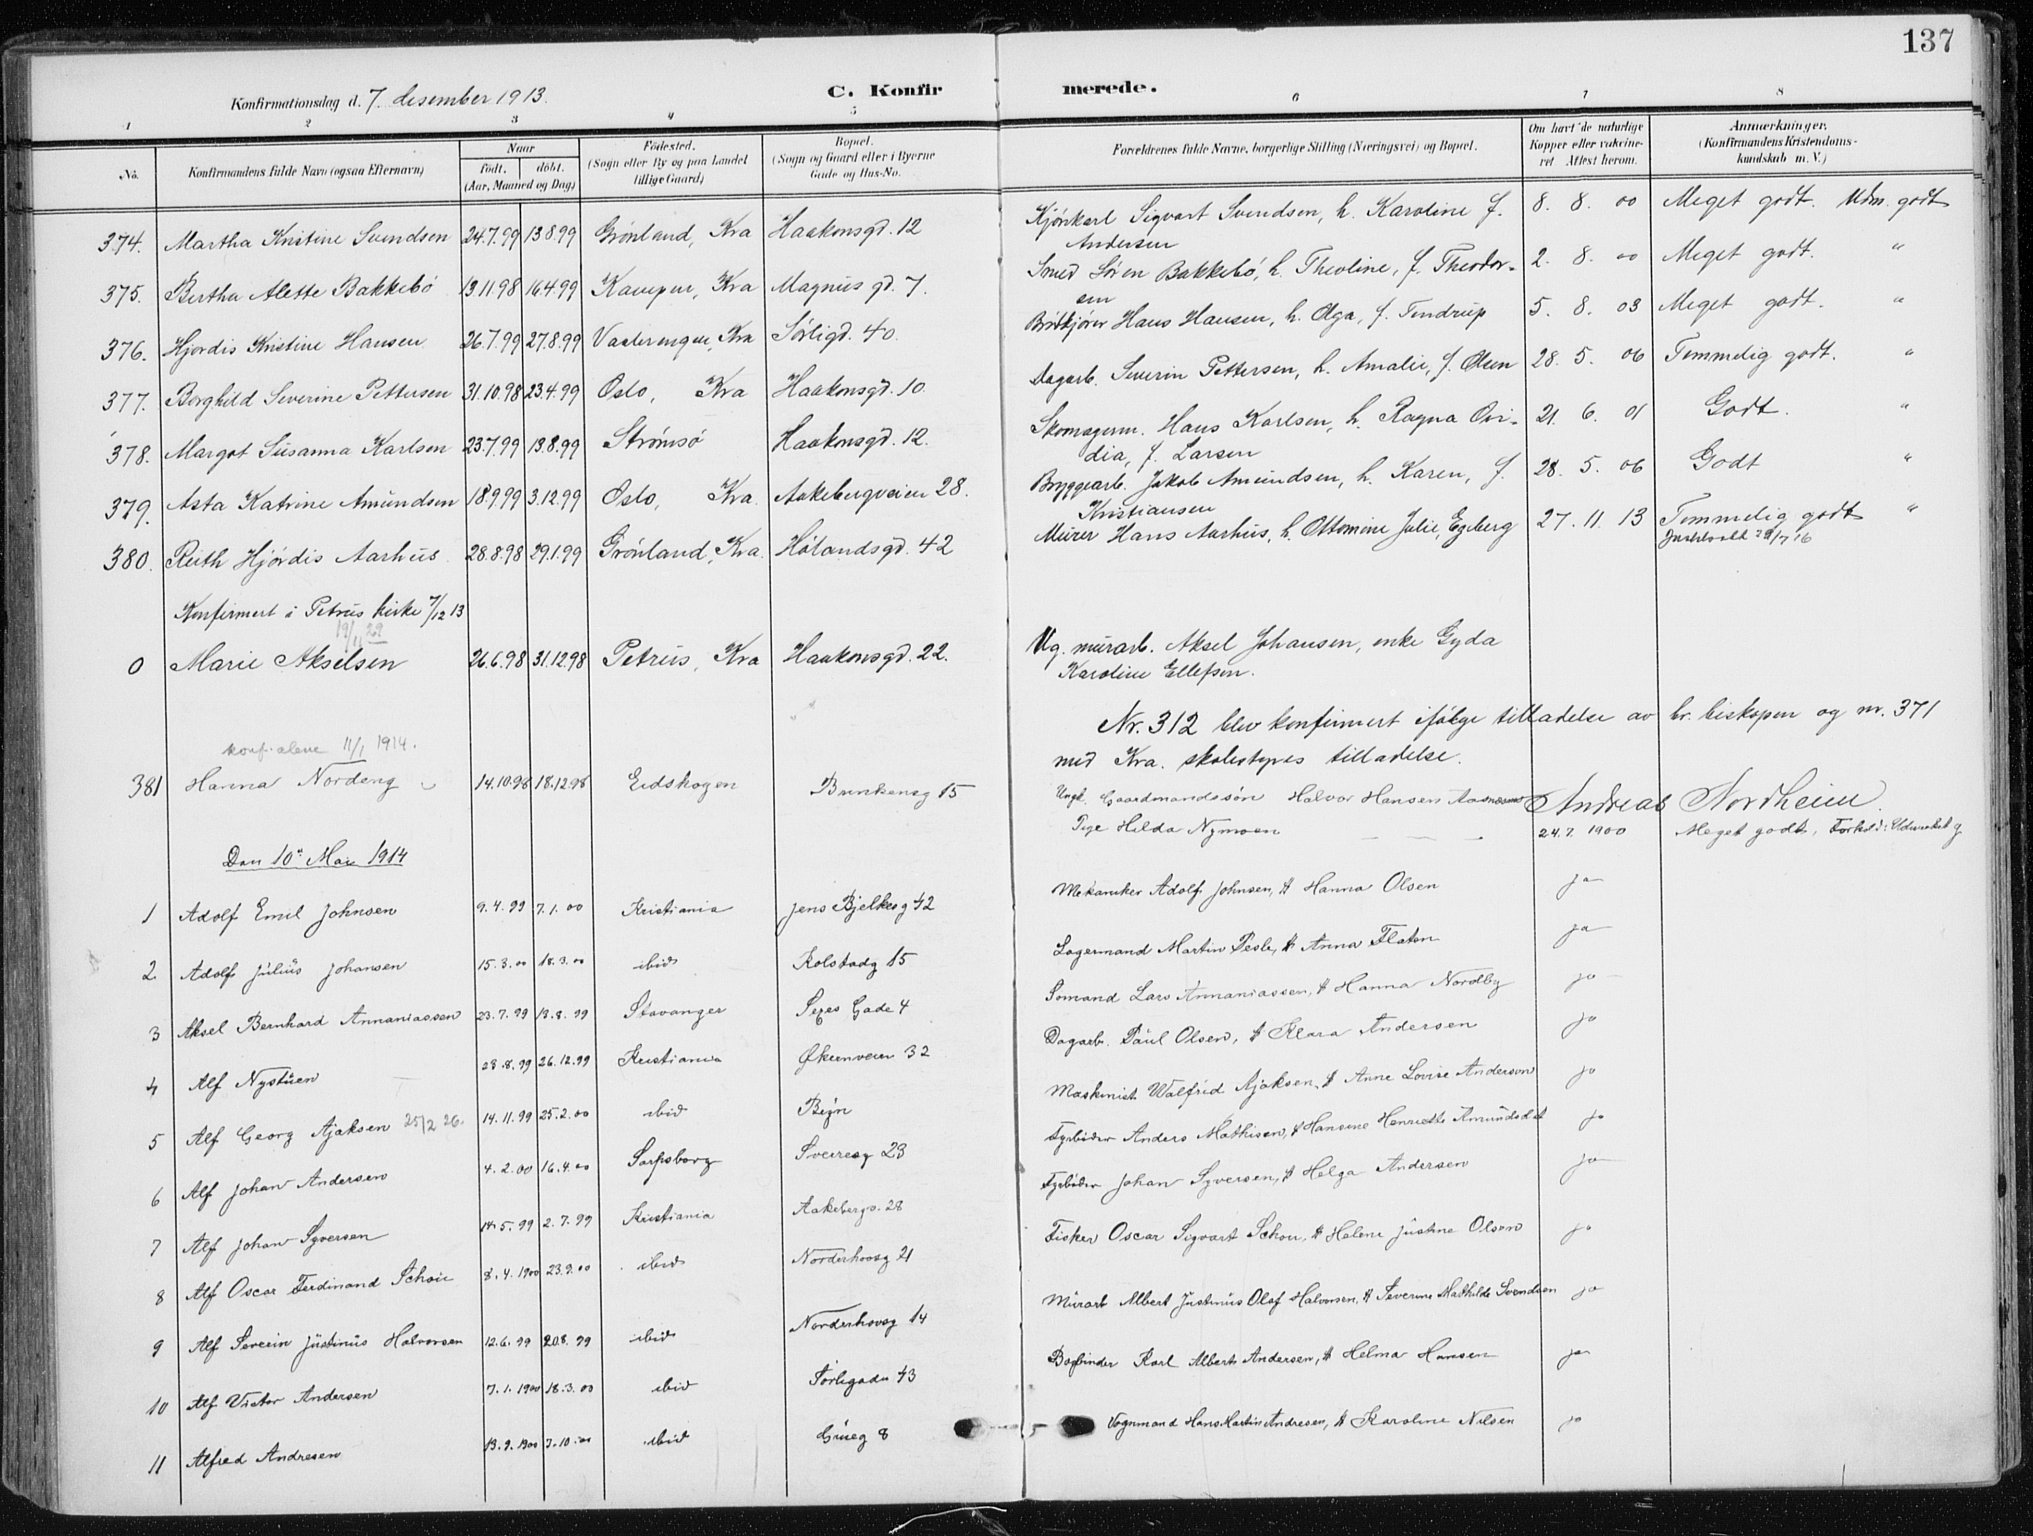 137
Konfirmationsdag d. 7. desember 1913.
C. Konfirmerede.
1 2 3 4 5 6 7 8
No. Konfirmandens fulde Navn (ogsaa Efternavn) Naar født. døbt. (Aar, Maaned og Dag) Fødested. (Sogn eller By og paa Landet tillige Gaard) Bopæl. (Sogn og Gaard eller i Byerne Gade og Hus-No. Forældrenes fulde Navne, borgerlige Stilling (Næringsvei) og Bopæl. Om havt de naturlige Kopper eller vakcineret Attest herom. Anmærkninger. (Konfirmandens Kristendomskundskab m. V.)
374. Martha Kristine Svendsen 24.7.99 13.8.99 Grønland, Kra Haakonsgd. 12 Kjørekarl Sigvart Svendsen, h. Karoline f. 8. 8. 00 Meget godt. Udm. godt
Andersen
375. Bertha Alette Bakkebø 13.11.98 16.4.99 Kampen, Kra Magnus gd. 7. Smed Søren Bakkebø, h. Theoline, f. Theodor- 2. 8. 00 Meget godt. "
sen
376. Hjørdis Kristine Hansen 26.7.99 27.8.99 Vaalerengen, Kra Sørligd. 40. Hans Hansen, h. Olga, f. Tendrup 5. 8. 03 Meget godt. "
377. Borghild Severine Pettersen 31.10.98 23.4.99 Oslo, Kra Haakonsgd. 10 Dagarb. Severin Pettersen, h. Amalie, f. Olsen 28. 5. 06 Temmelig godt. "
378. Margot Susanna Karlsen 23.7.99 13.8.99 Strømsø Haakonsgd. 12. Skomagerm. Hans Karlsen, h. Ragna Ovi- 21. 6. 01 Godt. "
dia, f. Larsen
379. Asta Katrine Amundsen 18.9.99 3.12.99 Oslo, Kra. Aakebergveien 28. Bryggearb. Jakob Amundsen, h. Karen, f. 28. 5. 06 Godt "
Kristiansen
380. Ruth Hjørdis Aarhus 28.8.98 29.1.99 Grønland, Kra. Hølandsgd. 42 Murer Hans Aarhus, h. Ottomine Julie, Egeberg 27. 11. 13 Temmelig godt "
Konfirmert i Petrus kirke 7/12 13
19/11 29
0 Marie Akselsen 26.6.98 31.12.98 Petrus, Kra Haakonsgd. 22. Ug. murarb. Aksel Johansen, enke Gyda
Karoline Ellefsen.
Nr. 312 blev konfirmert ifølge tilladelse av hr. biskopen og nr. 371
med Kra. skolestyres tilladelse.
Andreas Nordheim.
konf. alene 11/1 1914.
381 Hanna Nordeng 14.10.98 18.12.98 Eidskogen Brinkensg 15 Ungk. Gaardmandssøn Halvor Hansen
Pige Hilda Nymoen 24.7. 1900 Meget godt, Forhold: Udmerket g
Den 10de Mai 1914
1 Adolf Emil Johnsen 9.4.99 7.1.00 Kristiania Jens Bjelkesg 42 Mekaniker Adolf Johnsen, H Hanna Olsen ja
2 Adolf Julius Johansen 15.3.00 18.3.00 ibid Rolstadg 15 Lagermand Martin Pesle, H Anna Flaten ja
3 Aksel Bernhard Annaniassen 23.7.99 13.8.99 Stavanger Sexes Gade 4 Sømand Lars Annaniassen, H Hanna Nordby ja
4 Alf Nystuen 28.8.99 26.12.99 Kristiania Økernveien 32 Dagarb. Paul Olsen, H Klara Andersen ja
5 Alf Georg Ajaksen 25/2 26. 14.11.99 25.2.00 ibid Maskinist Walfrid Ajaksen, H Anne Lovise Anderson ja
6 Alf Johan Andersen 4.2.00 16.4.00 Sarpsborg Sverresg 23 Fyrbøder Anders Mathisen, H Hansine Henriette Amundsdat ja
7 Alf Johan Syversen 14.5.99 2.7.99 Kristiania Aakebergv. 28 Fyrbøder Johan Syversen, H Helga Andersen ja
8 Alf Oscar Ferdinand Schou 8.4.1900 23.9.00 ibid Norderhovsg 21 Fisker Oscar Sigvart Schou, H Helene Justine Olsen ja
9 Alf Severin Justinus Halvorsen 12.6.99 20.8.99 ibid Norderhovsg 14 Murarb Albert Justinus Olaf Halvorsen, H Severine Mathilde Svendsen ja
10 Alf Victor Andersen 7.1.1900 18.3.00 ibid Sørligaden 43 Bogbinder Karl Albert Andersen, H Helma Hansen ja
11 Alfred Andresen 13.9.1900 7.10.00 ibid Grueg 8 Vognmand Hans Martin Andresen, H Karoline Nilsen ja